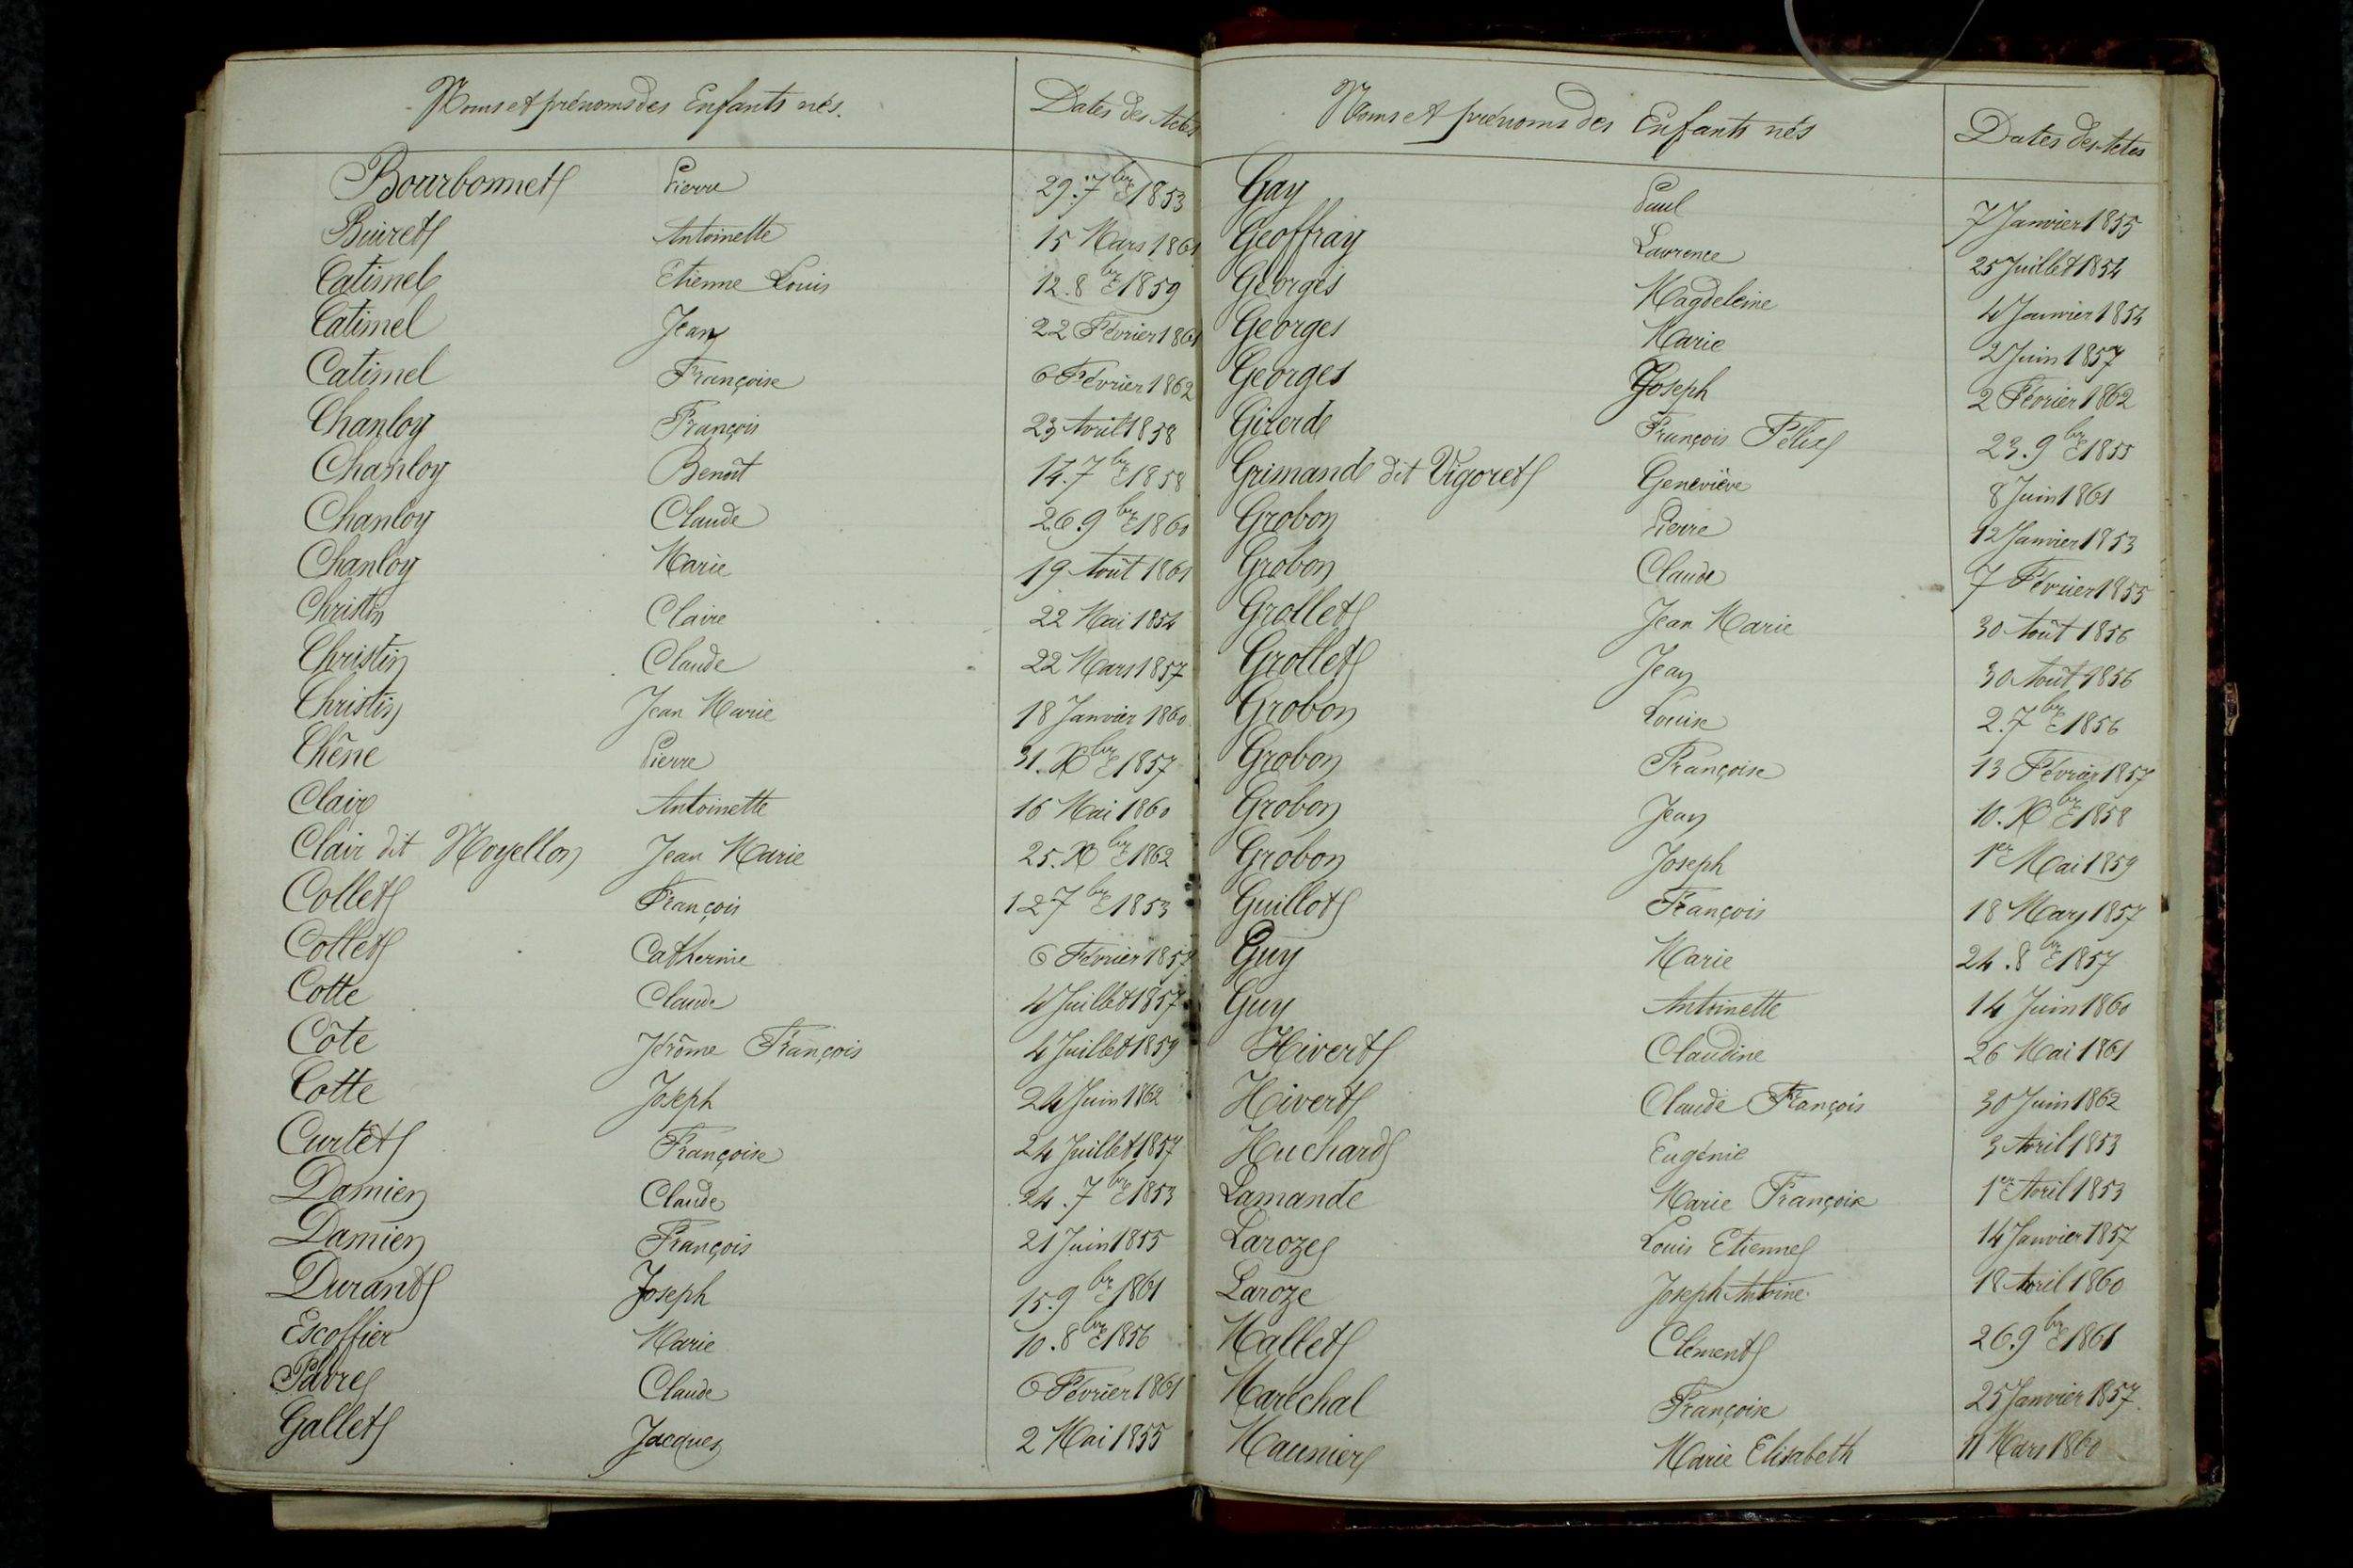 Noms et prénoms des Enfants nés. Dates des Actes
Bourbonnet Pierre 29. 7bre 1853
Buiret Antoinette 15 Mars 1861
Catimel Etienne Louis 12. 8bre 1859
Catimel Jean 22 Février 1861
Catimel Françoise 6 Février 1862
Chanloy François 23 Avril 1858
Chanloy Benoît 14. 7bre 1858
Chanloy Claude 26. 9bre 1860
Chanloy Marie 19 Août 1861
Christin Claire 22 Mai 1854
Christin Claude 22 Mars 1857
Christin Jean Marie 18 Janvier 1860
Chêne Pierre 31. Xbre 1857
Clair Antoinette 16 Mai 1860
Clair dit Noyellon Jean Marie 25. Xbre 1862
Collet François 12 7bre 1853
Collet Catherine 6 Février 1857
Cotte Claude 4 Juillet 1857
Côte Jérôme François 4 Juillet 1859
Cotte Joseph 24 Juin 1862
Curtet Françoise 24 Juillet 1857
Damien Claude 24. 7bre 1853
Damien François 21 Juin 1855
Durand Joseph 15. 9bre 1861
Escoffier Marie 10. 8bre 1856
Favre Claude 6 Février 1861
Gallet Jacques 2 Mai 1855
Noms et prénoms des Enfants nés Dates des Actes
Gay Paul 7 Janvier 1855
Geoffray Laurence 25 Juillet 1854
Georges Magdeleine 4 Janvier 1854
Georges Marie 2 Juin 1857
Georges Joseph 2 Février 1862
Girerd François Félix 23. 9bre 1855
Grimand dit Vigoret Geneviève 8 Juin 1861
Grobon Pierre 12 Janvier 1853
Grobon Claude 7 Février 1855
Grollet Jean Marie 30 Août 1856
Grollet Jean 30 Août 1856
Grobon Louise 2. 7bre 1856
Grobon Françoise 13 Février 1857
Grobon Jean 10. Xbre 1858
Grobon Joseph 1er Mai 1859
Guillot François 18 Mars 1857
Guy Marie 24. 8bre 1857
Guy Antoinette 14 Juin 1860
Hivert Claudine 26 Mai 1861
Hivert Claude François 30 Juin 1862
Huchard Eugénie 3 Avril 1853
Lamande Marie Françoise 1er Avril 1853
Laroze Louis Etienne 14 Janvier 1857
Laroze Joseph Antoine 18 Avril 1860
Mallet Clément 26. 9bre 1861
Maréchal Françoise 25 Janvier 1857
Maunier Marie Elisabeth 11 Mars 1860